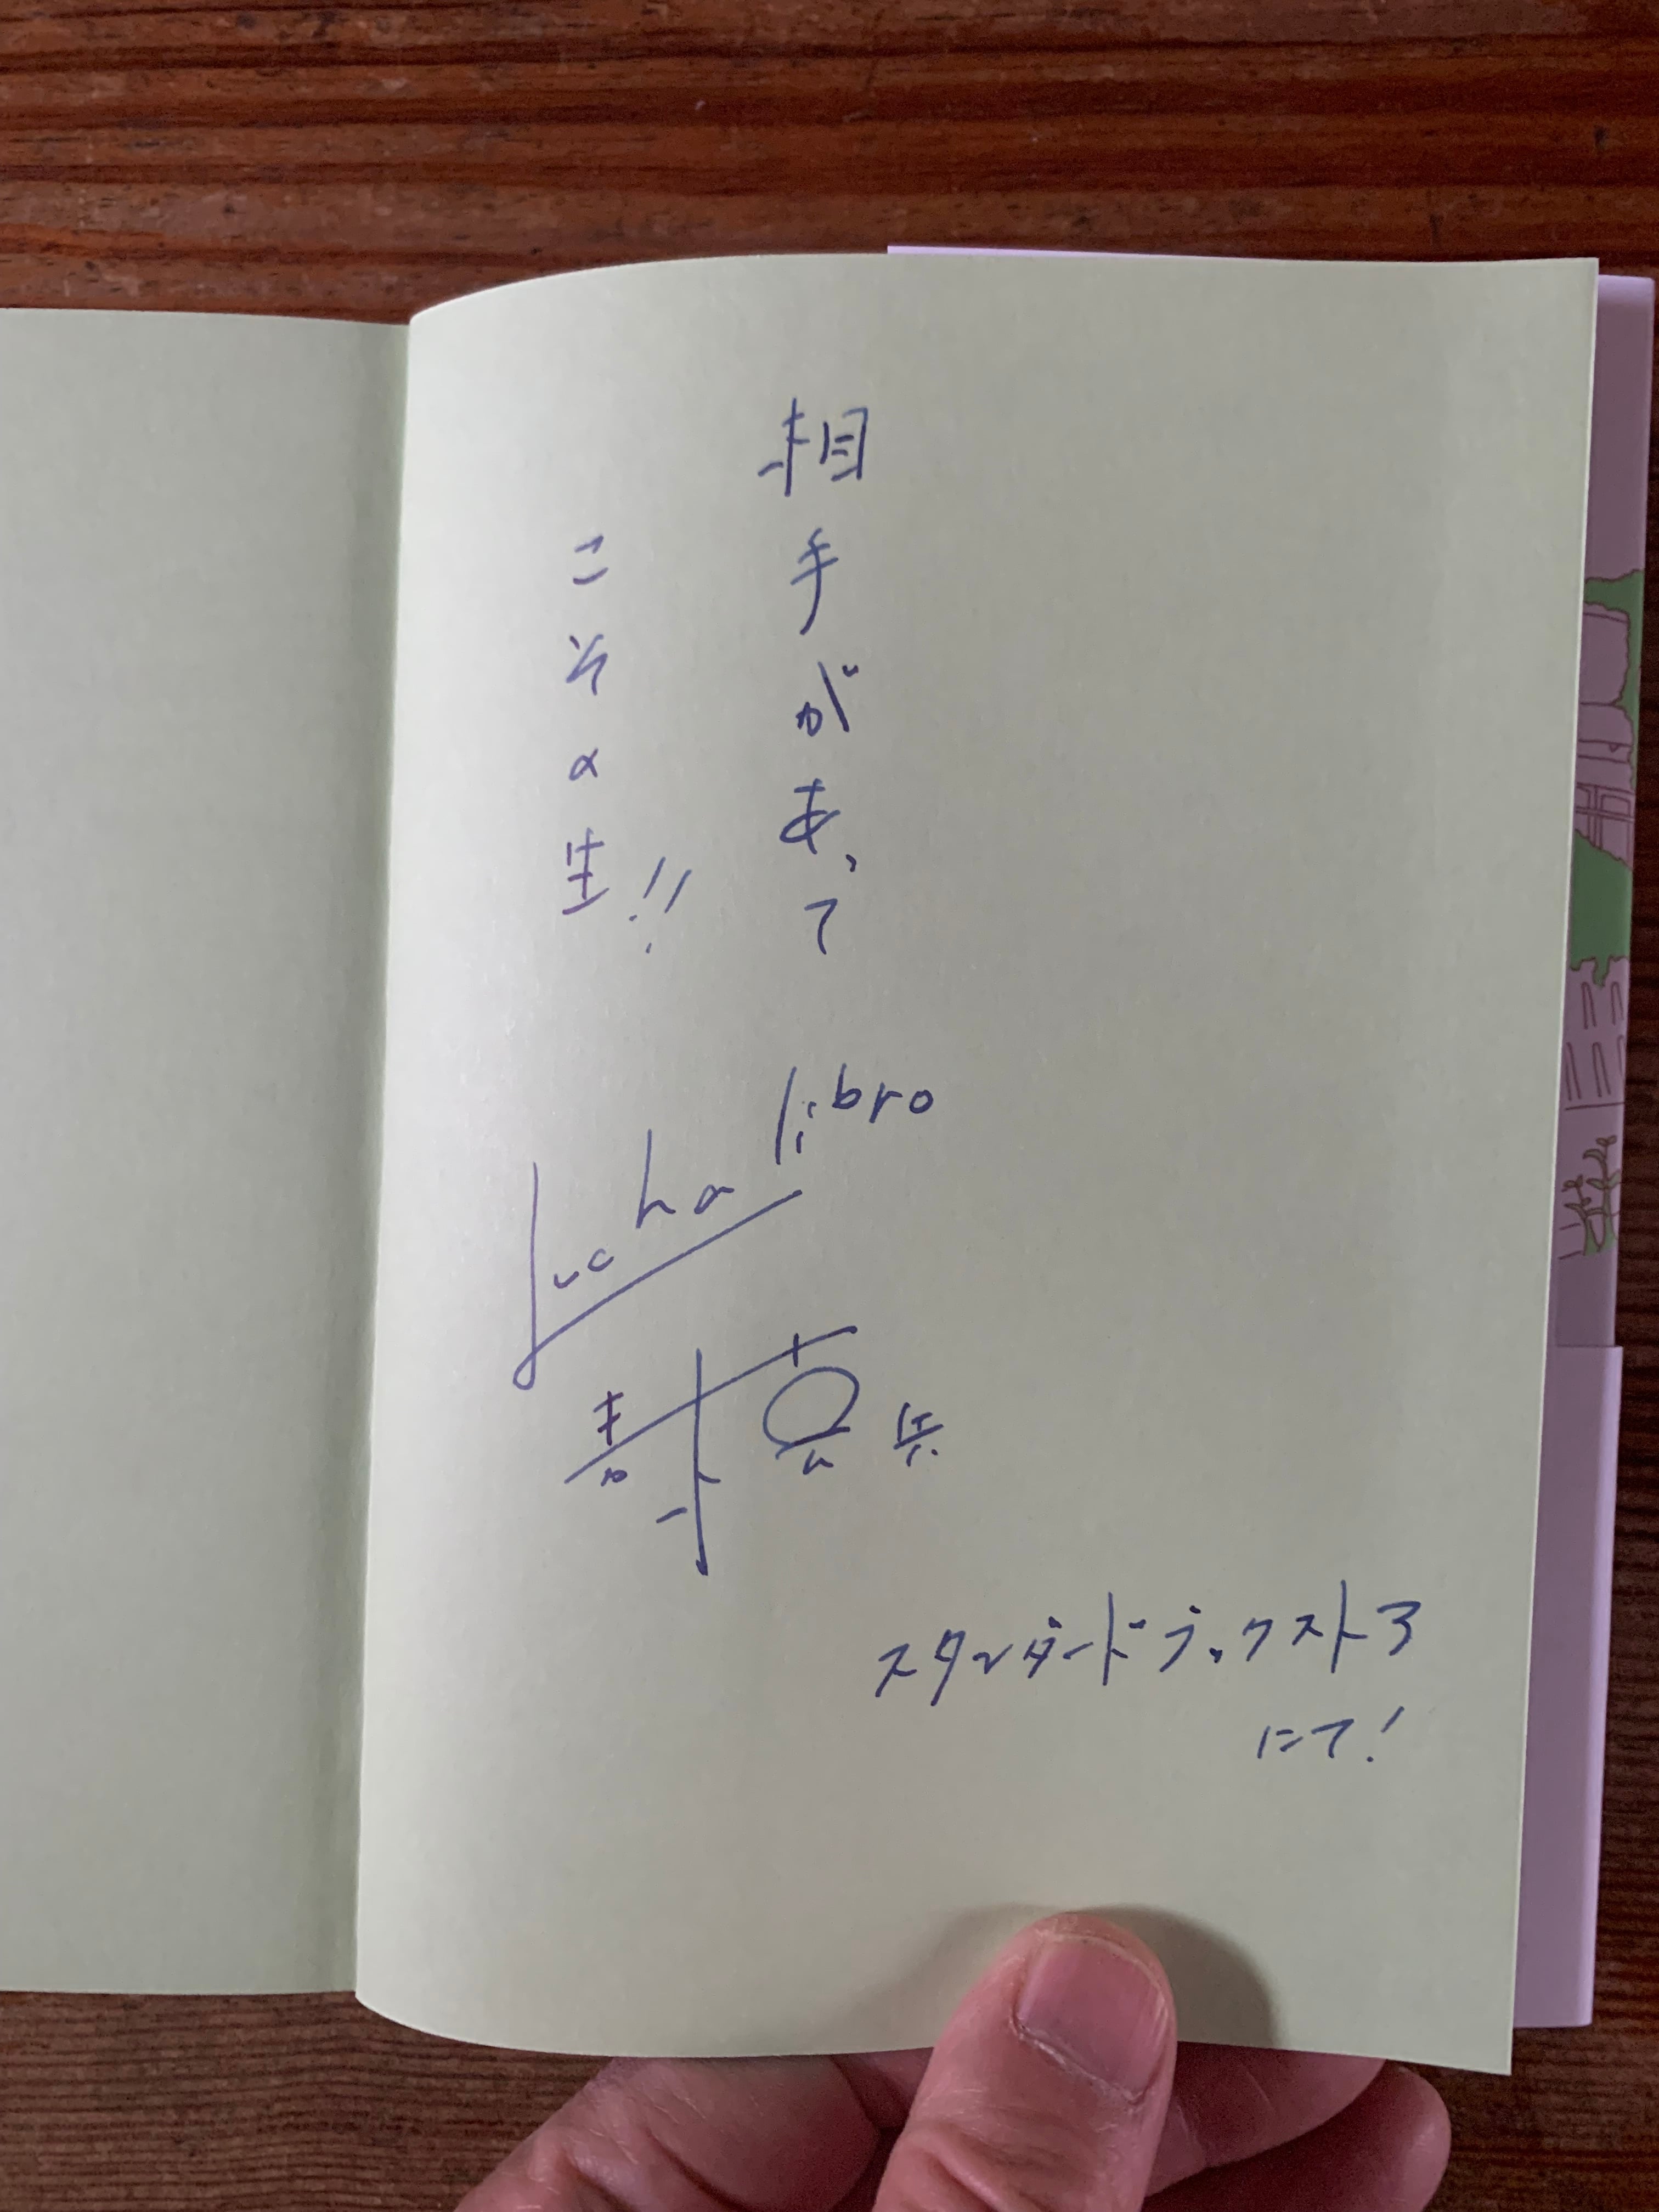 相手があって
こその生!!
Lucha libro
青木真兵
スタンダードブックストア
にて!